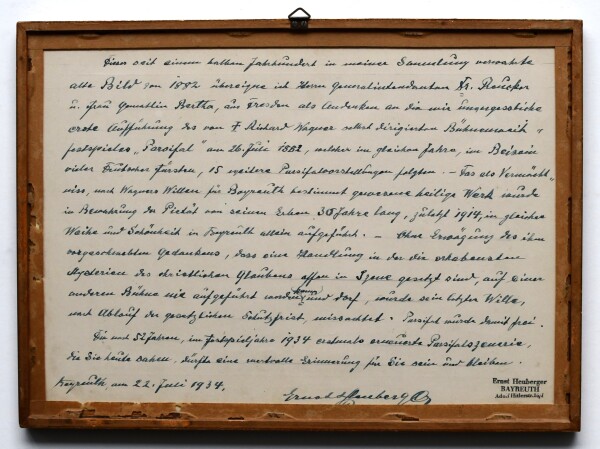 Dieses seit einem halben Jahrhundert in meiner Sammlung verwahrte
alte Bild von 1882 übereigne ich Herrn Generalintendanten Dr. Reucker
u. Frau Gemahlin Bertha, aus Dresden als Andenken an die mir unvergessliche
erste Aufführung des von Richard Wagner selbst dirigierten Bühnenweih-
festspieles „Parsifal" am 26. Juli 1882, welcher im gleichen Jahre, im Beisein
vieler Fürsten, 15 weitere Parsifalvorstellungen folgten. – Das als Vermächt-
niss, nach Wagners Willen für Bayreuth bestimmt gewesene heilige Werk wurde
in Bewahrung der Pietät von seinen Erben 30 Jahre lang, zuletzt 1914, in gleicher
Weihe und Schönheit in Bayreuth allein aufgeführt. – Ohne Erwägung des ihm
vorgeschwebten Gedankens, dass eine Handlung in der die erhabensten
Mysterien des christlichen Glaubens offen in Szene gesetzt sind, auf einer
anderen Bühne nie aufgeführt werden kann und darf, wurde sein letzter Wille,
nach Ablauf der gesetzlichen Schutzfrist, missachtet. Parsifal wurde damit frei.
Die nach 52 Jahren, im Festspieljahre 1934 erstmals erneuerte Parsifalszenerie,
die Sie heute sahen, dürfte eine wertvolle Erinnerung für Sie sein und bleiben.
Bayreuth, am 22. Juli 1934.
Ernst Heuberger
Ernst Heuberger
BAYREUTH
Adolf Hitlerstr.